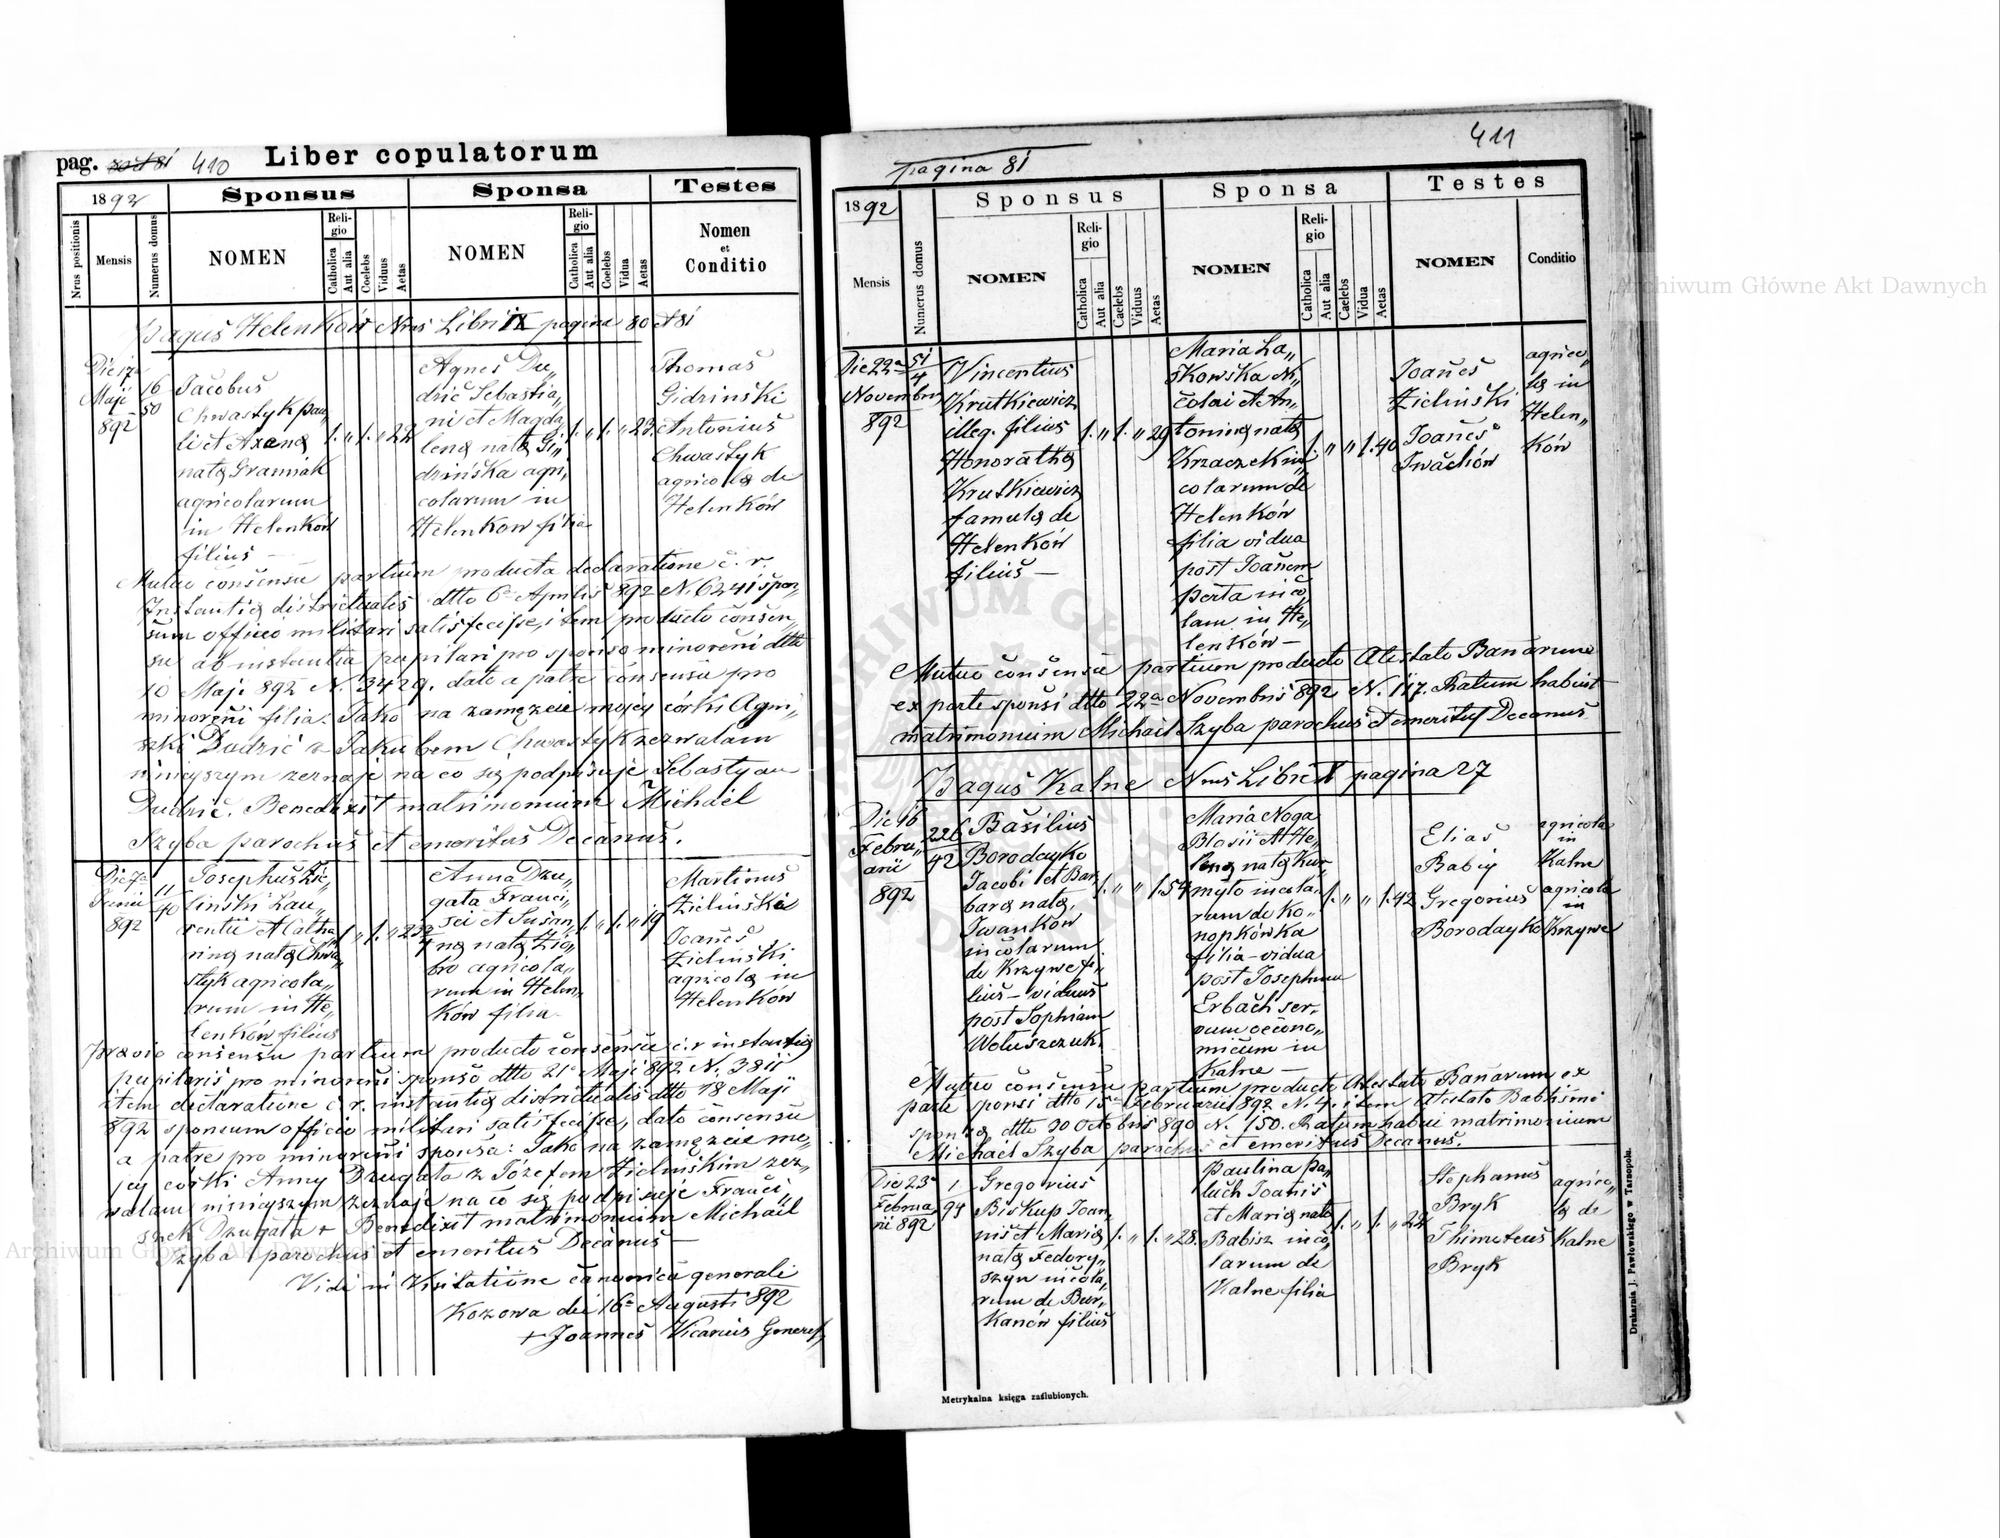 pag. 80 et 81 410 Liber copulatorum
1892 Sponsus Sponsa Testes
Nrus positionis Mensis Numerus domus NOMEN Religio Catholica Aut alia Caelebs Viduus Aetas NOMEN Religio Catholica Aut alia Caelebs Vidua Aetas Nomen et Conditio
Pagus Helenków Nrus Libri IX pagina 80 et 81
Die 17a
Maji
892
16
50
Jacobus
Chwastyk Pau„
li et Axena
nata Granniak
agricolarum
in Helenków
filius —
1. „ 1. „ 22
Agnes Du„
drič Sebastia„
ni et Magda„
lena nata Gi„
drińska agri„
colarum in
Helenkow filia
1. „ 1. „ 23.
Thomas
Gidrinski
Antonius
Chwastyk
agricola de
Helenków
Mutuo consensu partium producta declaratione c. r.
Instantia districtualis dtto 6a Aprilis 892 N. 6241 spon„
sum officio militari satisfecisse, item producto consen„
su ab instantia pupilari pro sponso minoreni dtto
10 Maji 892 N. 3429. dato a patre consensu pro
minoreni filia: Jako na zamęzcie mojej córki Agni„
szki Dudrić z Jakubem Chwastyk zezwalam
niniejszym zeznaję na co się podpisuję Sebastyan
Dudrić. Benedixit matrimonium Michael
Szyba parochus et emeritus Decanus.
Die 7a
Junii
892
11
40
Josephus Zie„
linski Lau„
rentii et Catha
rina nata Chwa„
styk agricola„
rum in He„
lenków filius
1 „ 1. „ 23½
Anna Dzu„
gata Franci„
sci et Susan„
na nata Zio„
bro agricola„
rum in Helen„
ków filia
1 „ 1. „ 19
Martinus
Zielinski
Joanes
Zielinski
agricola in
Helenków
Praevio consensu partium producto consensu c. r instantia
pupilaris pro minoreni sponso dtto 21a Maji 892 N. 3811
item declaratione c. r. instantia districtualis dtto 18 Maji
892 sponsum officio militari satisfecisse, dato consensu
a patre pro minoreni sponsa: Jako na zamęzcie mo„
jej córki Anny Dzugata z Józefem Zielińskim zez„
walam niniejszym zeznaję na co się podpisuje Franci„
szek Dzugata + Benedixit matrimonium Michael
Szyba parochus et emeritus Decanus —
Vidi in Visitatione canonica generali
Kozowa die 16a Augusti 892
+ Joannes Vicarius General
pagina 81 411
1892 Sponsus Sponsa Testes
Mensis Numerus domus NOMEN Religio Catholica Aut alia Caelebs Viduus Aetas NOMEN Religio Catholica Aut alia Caelebs Vidua Aetas NOMEN Conditio
Die 22a
Novembris
892
51
4
Vincentius
Krutkiewicz
illeg. filius
Honoratha
Krutkiewicz
famula de
Helenków
filius —
1. „ 1. „ 29
Maria La„
skowska Ni„
colai et An„
tonina nata
Krzaczek in„
colarum de
Helenków
filia vidua
post Joanem
Perta inco„
lam in He„
lenków —
1. „ „ 1. 40
Joanes
Zielinski
Joanes
Iwachów
agrico„
la in
Helen„
ków
Mutuo consensu partium producto Atestato Banarum
ex parte sponsi dtto 22a Novembris 892 N. 117. Ratum habuit
matrimonium Michael Szyba parochus et emeritus Decanus
Pagus Kalne Nrus Libri X pagina 27
Die 16
Febru„
arii
892
226
42
Basilius
Borodayko
Jacobi et Bar„
bara nata
Iwanków
incolarum
de Krzywe fi„
lius — viduus
post Sophiam
Woluszczuk.
1. „ „ 1. 54
Maria Noga
Blasii et He„
lena nata Kur„
myto incola„
rum de Ko„
nopkówka
filia — vidua
post Josephum
Erbach ser„
vum oecono„
micum in
Kalne —
1. „ „ 1. 42
Elias
Babiy
Gregorius
Borodayko
agricola
in
Kalne
agricola
in
Krzywe
Mutuo consensu partium producto Atestato Banarum ex
parte sponsi dtto 15a Februarii 892 N. 4. item Atestato Babtismi
sponsa dtto 20 Octobris 890 N. 150. Ratum habui matrimonium
Michael Szyba parochus et emeritus Decanus.
Die 23a
Februa
rii 892
1
94
Gregorius
Biskup Joan„
nis et Maria
nata Fedory„
szyn incola„
rum de Bur„
kanów filius
1. „ 1. „ 28.
Paulina Pa„
luch Joanis
et Maria nata
Babisz inco„
larum de
Kalne filia
1. „ 1. „ 22
Stephanus
Bryk
Thimoteus
Bryk
agrico„
la de
Kalne
Metrykalna księga zaślubionych.
Drukarnia J. Pawłowskiego w Tarnopolu.
Archiwum Główne Akt Dawnych
Archiwum Główne Akt Dawnych